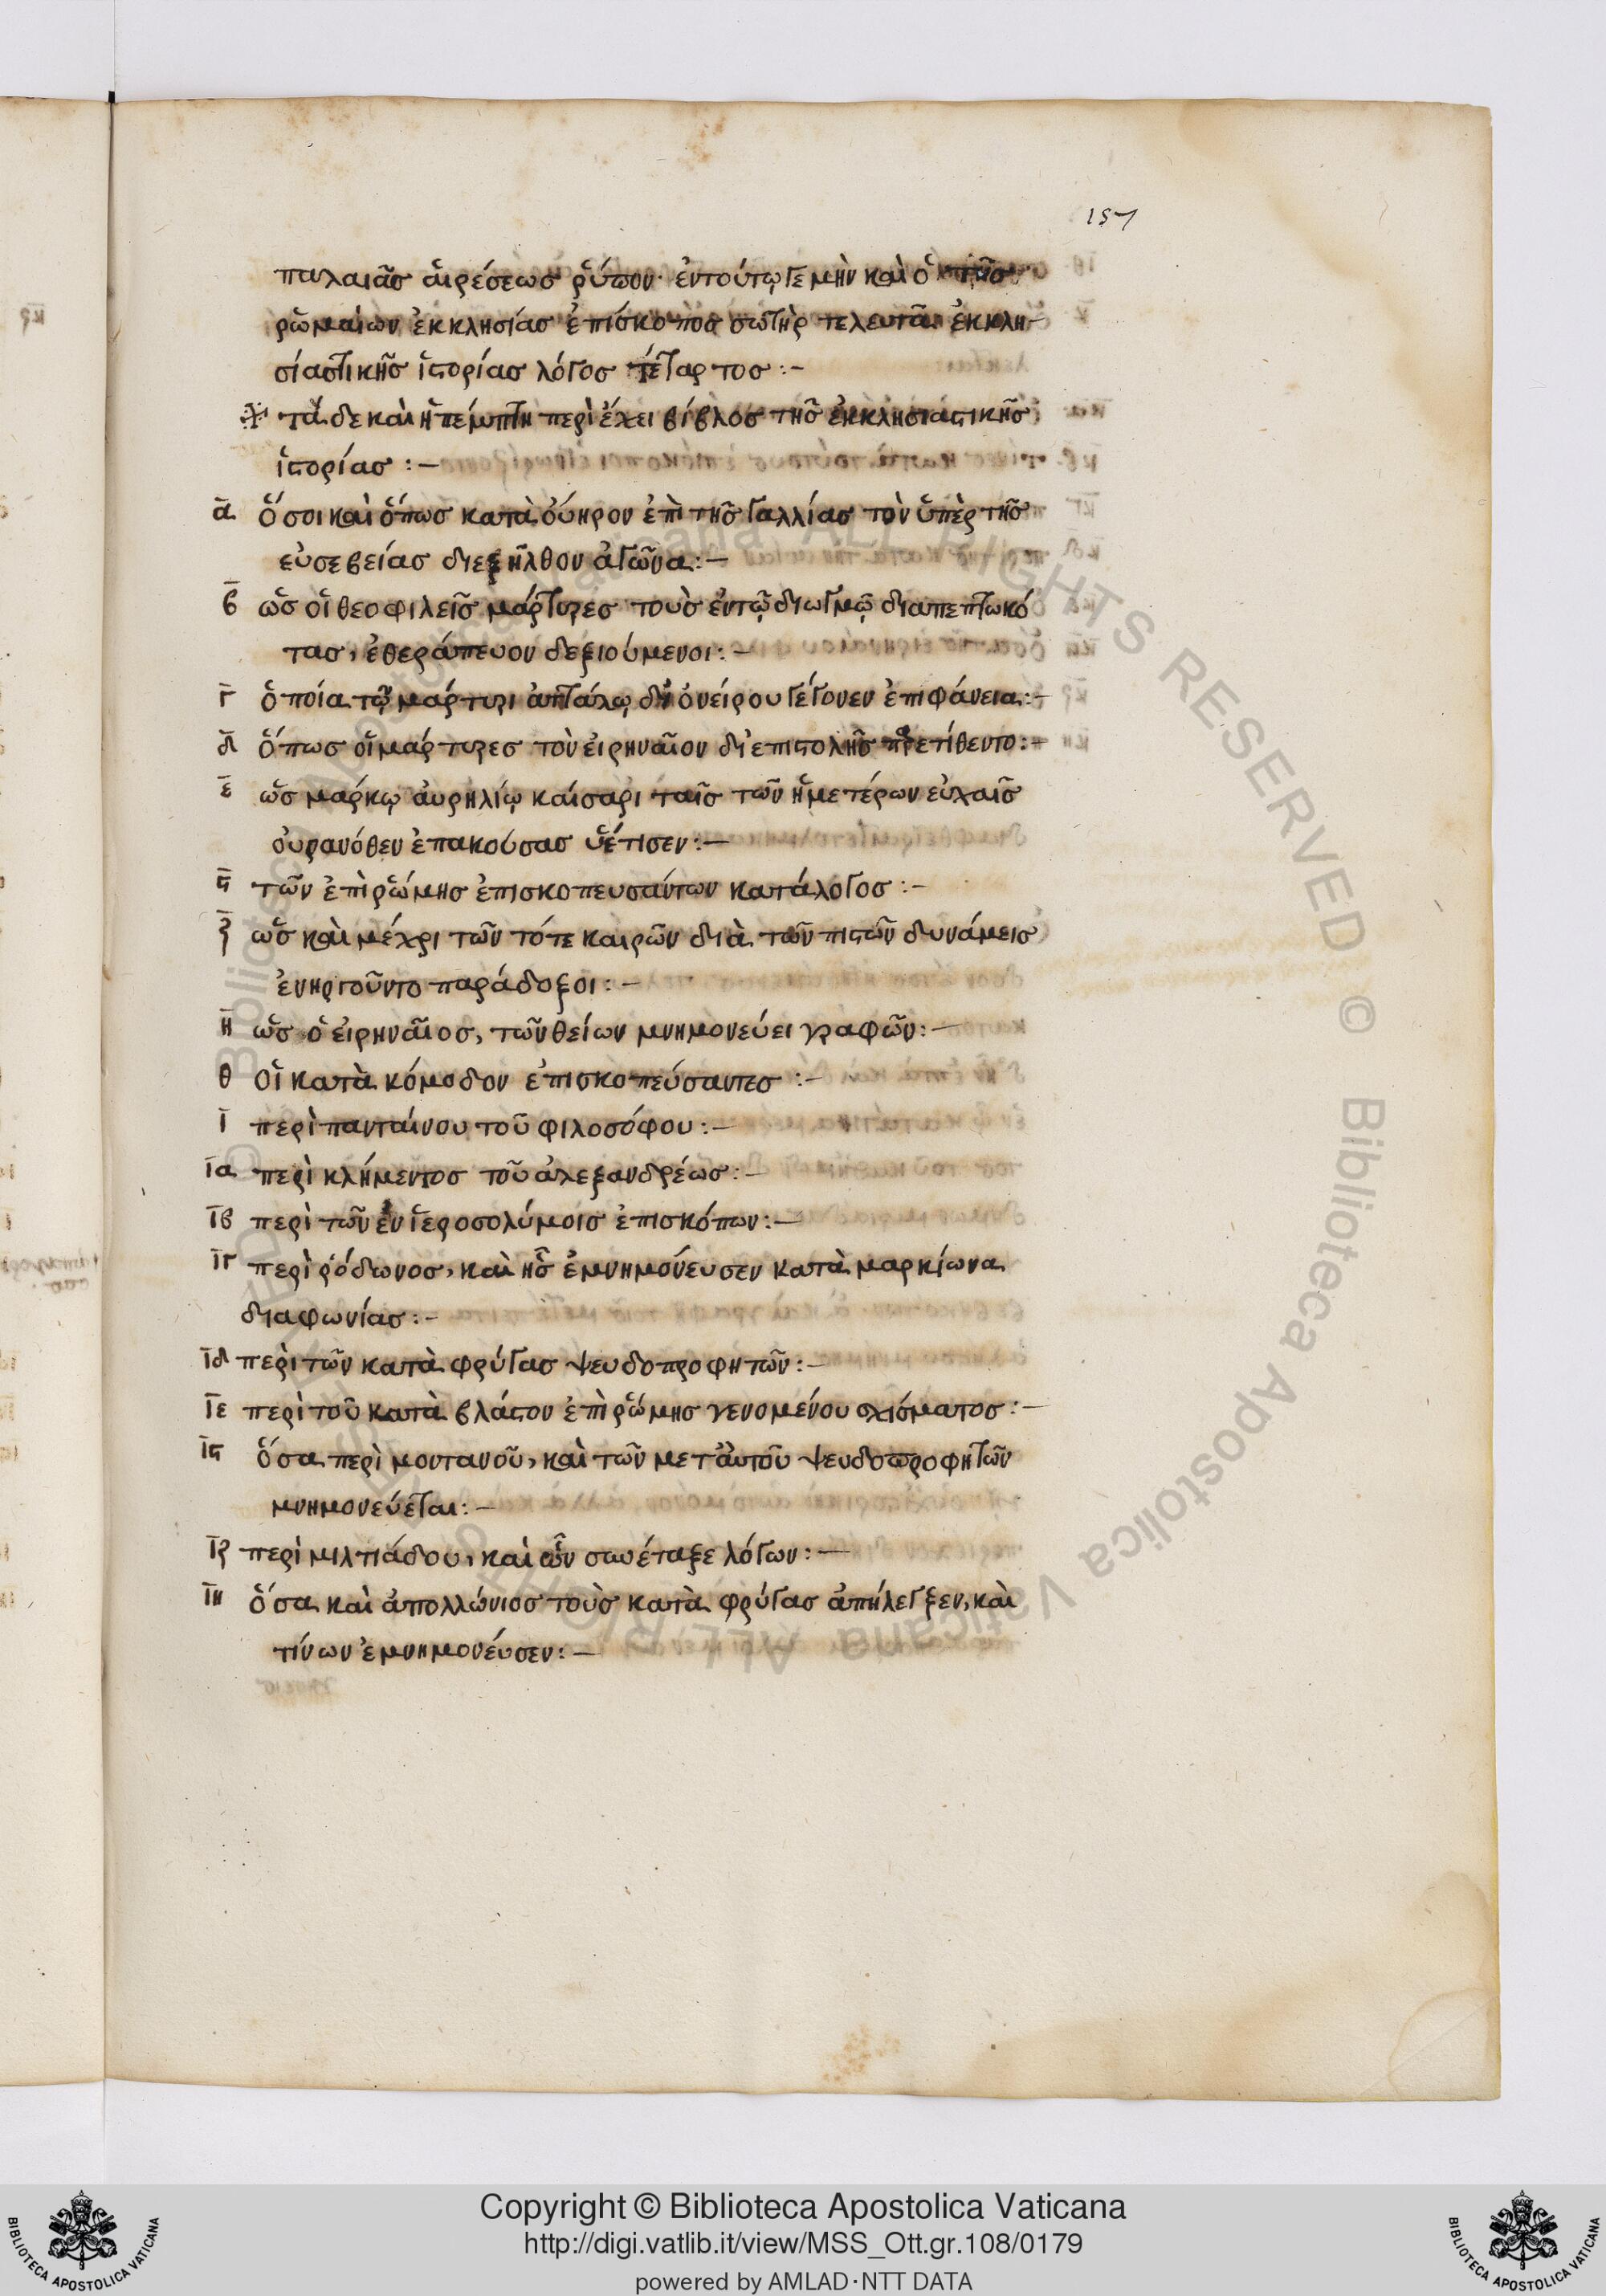 157
παλαιᾶς αἱρέσεως ῥύπον· ἐντούτῳ γε μὴν καὶ ὁ τῆς
ῥωμαίων ἐκκλησίας ἐπίσκοπος σωτὴρ τελευτᾶ ἐκκλη-
σιαστικῆς ἱστορίας λόγος τέταρτος :-
τάδε καὶ ἡ πέμπτη περιέχει βίβλος τῆς ἐκκλησιαστικῆς
ἱστορίας :-
α ὅσοι καὶ ὅπως κατὰ οὐῆρον ἐπὶ τῆς γαλλίας τὸν ὑπὲρ τῆς
εὐσεβείας διεξῆλθον ἀγῶνα :-
β ὡς οἱ θεοφιλεῖς μάρτυρες τοὺς ἐντῷ διωγμῷ διαπεπτωκό
τας, ἐθεράπευον δεξιούμενοι :-
γ ὁποία τῷ μάρτυρι ἀττάλῳ δι ὀνείρου γέγονεν ἐπιφάνεια :-
δ ὅπως οἱ μάρτυρες τὸν εἰρηναῖον δι ἐπιστολῆς παρετίθεντο :-
ε ὡς μάρκῳ αὐρηλίῳ καίσαρι ταῖς τῶν ἡμετέρων εὐχαῖς
οὐρανόθεν ἐπακούσας ὑέτισεν :-
ϛ τῶν ἐπὶ ῥώμης ἐπισκοπευσάντων κατάλογος :-
ζ ὡς καὶ μέχρι τῶν τότε καιρῶν διὰ τῶν πιστῶν δυνάμεις
ἐνηργοῦντο παράδοξοι :-
η ὡς ὁ εἰρηναῖος, τῶν θείων μνημονεύει γραφῶν :-
θ οἱ κατὰ κόμοδον ἐπισκοπεύσαντες :-
ι περὶ πανταίνου τοῦ φιλοσόφου :-
ια περὶ κλήμεντος τοῦ ἀλεξανδρέως :-
ιβ περὶ τῶν ἐν ἱεροσολύμοις ἐπισκόπων :-
ιγ περὶ ῥόδωνος, καὶ ἧς ἐμνημόνευσεν κατὰ μαρκίωνα
διαφωνίας :-
ιδ περὶ τῶν κατὰ φρύγας ψευδοπροφητῶν :-
ιε περὶ τοῦ κατὰ βλάστον ἐπὶ ῥώμης γενομένου σχίσματος :-
ιϛ ὅσα περὶ μοντανοῦ, καὶ τῶν μετ αὐτοῦ ψευδοπροφητῶν
μνημονεύεται :-
ιζ περὶ μιλτιάδου, καὶ ὧν συνέταξε λόγων :-
ιη ὅσα καὶ ἀπολλώνιος τοὺς κατὰ φρύγας ἀπήλεγξεν, καὶ
τίνων ἐμνημονέυσεν :-
© Biblioteca Apostolica Vaticana ALL RIGHTS RESERVED © Biblioteca Apostolica Vaticana ALL RIGHTS RESERVED
Copyright © Biblioteca Apostolica Vaticana
http://digi.vatlib.it/view/MSS_Ott.gr.108/0179
powered by AMLAD·NTT DATA
BIBLIOTECA APOSTOLICA VATICANA
BIBLIOTECA APOSTOLICA VATICANA